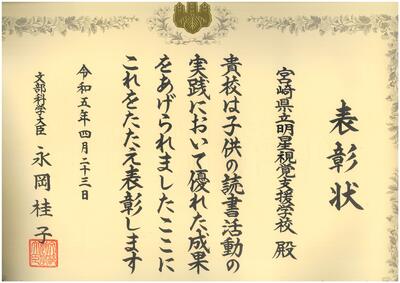 表彰状
宮崎県立明星視覚支援学校 殿
貴校は子供の読書活動の
実践において優れた成果
をあげられましたここに
これをたたえ表彰します
令和五年四月二十三日
文部科学大臣 永岡桂子